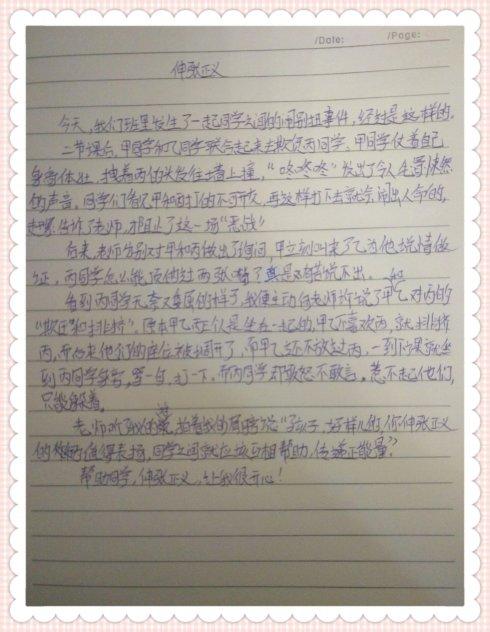 /Date: /Page:
伸张正义
今天，我们班里发生了一起同学之间的闹别扭事件，经过是这样的。
二节课后，甲同学和乙同学联合起来去欺负丙同学，甲同学仗着自己
身高体壮，拽着丙的头发往墙上撞，“咚咚咚”发出了令人毛骨悚然
的声音。同学们看见甲和丙打的不可开交，再这样打下去就会闹出人命的，
赶紧告诉了老师，才阻止了这一场“恶战”
后来，老师分别对甲和丙做出了询问，甲立刻叫来了乙为他说情做
证，丙同学怎么能顶他过两张嘴？真是有苦说不出。
看到丙同学无辜又委屈的样子，我便主动向老师诉说了甲和乙对丙的
“欺压和排挤”。原本甲乙丙三个人是坐在一起的，甲乙不喜欢丙，就排挤
丙，再后来他们的座位被调开了，而甲乙还不放过丙，一到下课就坐
到丙同学身旁，骂一句，打一下。而丙同学却敢怒不敢言。惹不起他们，
只能躲着。
老师听了我的话，拍着我的肩膀说“孩子，好样儿的，你伸张正义
的值得表扬，同学之间就应该互相帮助，传递正能量”。
帮助同学，伸张正义，让我很开心！